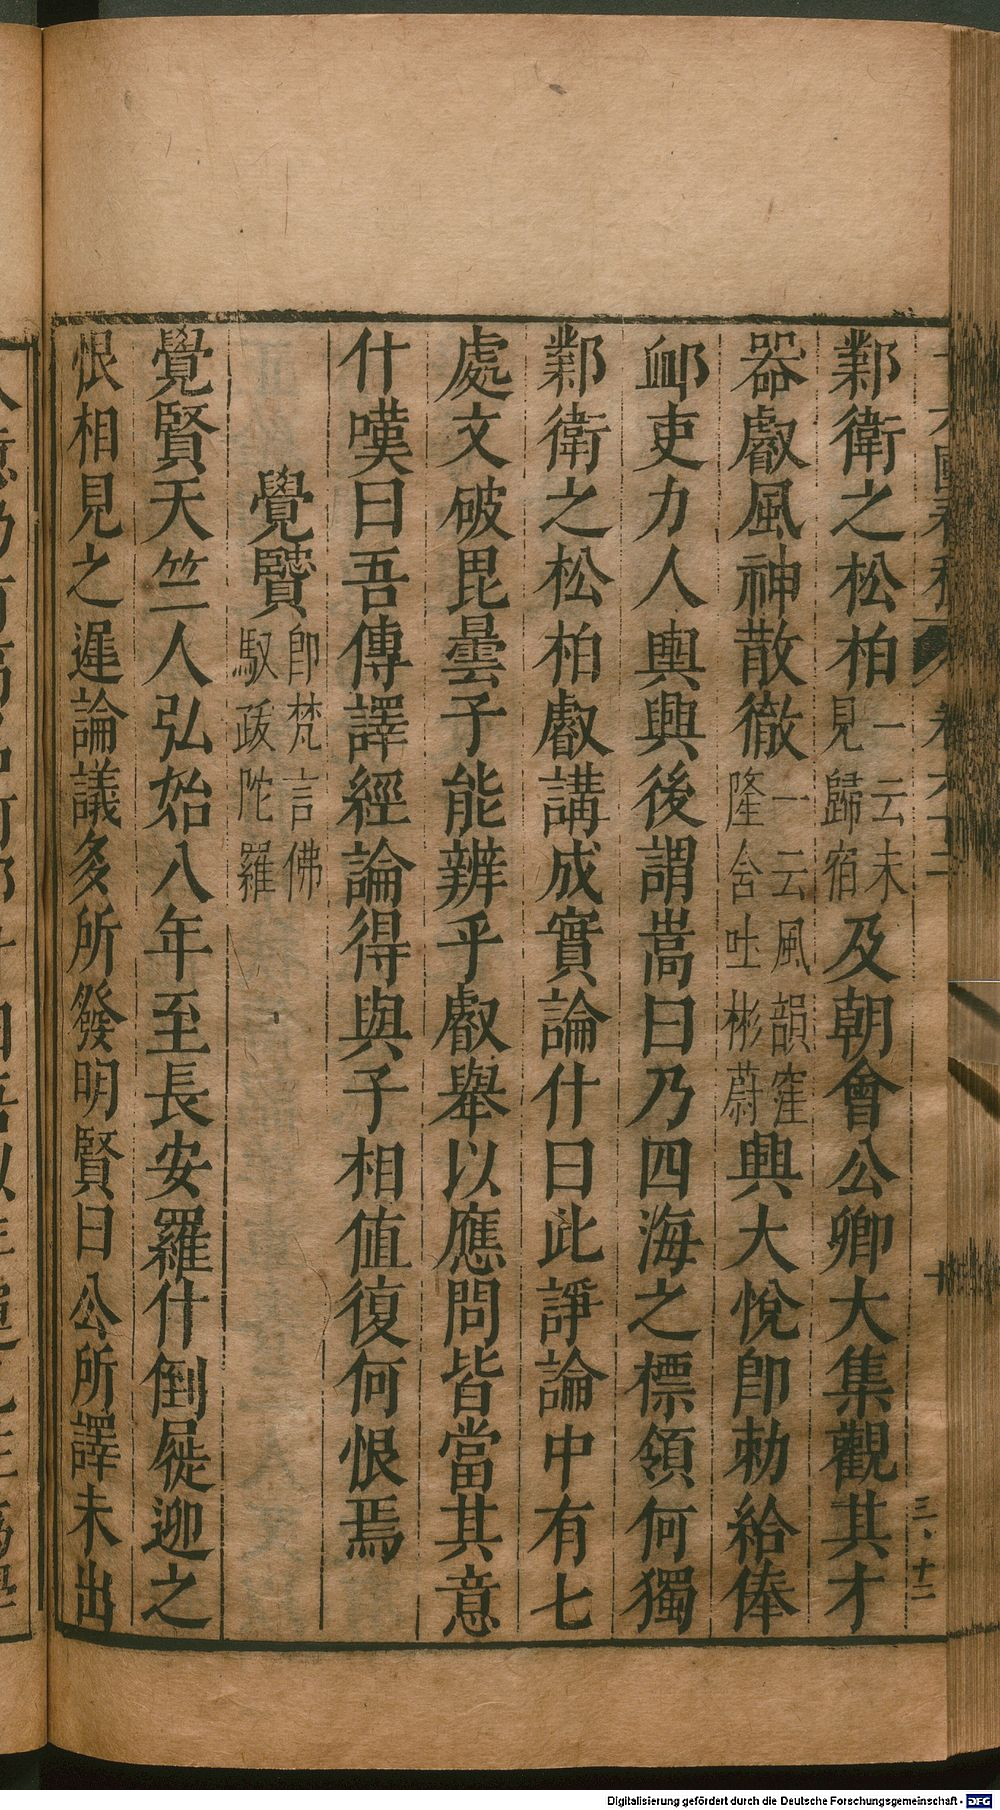 鄴衛之松柏一云未見歸宿及朝會公卿大集觀其才
器叡風神散徹一云風韻窪隆含吐彬蔚興大悅卽勅給俸
卹吏力人輿興後謂嵩曰乃四海之標領何獨
鄴衛之松柏叡講成實論什曰此諍論中有七
處文破毘曇子能辨乎叡舉以應問皆當其意
什嘆曰吾傳譯經論得與子相值復何恨焉
覺賢卽梵言佛馭跋陀羅
覺賢天竺人弘始八年至長安羅什倒屣迎之
恨相見之遲論議多所發明賢曰公所譯未出
三、十二
Digitalisierung gefördert durch die Deutsche Forschungsgemeinschaft - DFG